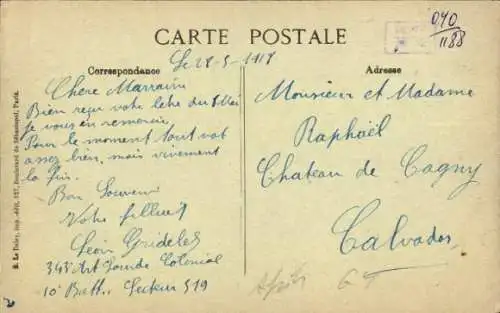 CARTE POSTALE
040
1188
Le 28-5-1918
Correspondance
Chère Marraine
Bien reçu votre lettre du 8 Mai
je vous en remercie
Pour le moment tout vat
assez bien, mais vivement
la fin.
Bon Souvenir
Votre filleul
Léon
343e Art Lourde Colonial
10e Batt. Secteur 519
Adresse
Monsieur et Madame
Raphaël
Chateau de Cagny
Calvados
E. Le Deley, imp.-édit., 127, Boulevard de Sébastopol, Paris.